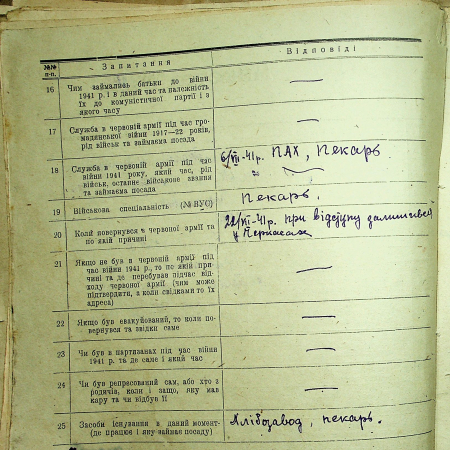 №№ п-п.
Запитання
Відповіді
16 Чим займались батьки до війни
1941 р. і в даний час та належність
їх до комуністичної партії і з
якого часу
—
17 Служба в червоній армії під час гро-
мадянської війни 1917—22 років,
рід військ та займаєма посада
—
18 Служба в червоній армії під час
війни 1941 року, який час, рід
військ, останнє військове звання
та займаєма посада
ПАХ, Пекарь
19 Військова спеціальність (№ ВУС)
Пекарь.
20 Коли повернувся з червоної армії та
по якій причині
при відступу
21 Якщо не був в червоній армії під
час війни 1941 р., то по якій при-
чині та де перебував підчас від-
ходу червоної армії (чим може
підтвердити, а коли свідками то їх
адреса)
—
22 Якщо був евакуйований, то коли по-
вернувся та звідки саме
—
23 Чи був в партизанах під час війни
1941 р. та де саме і який час
—
24 Чи був репресований сам, або хто з
родичів, коли і защо, яку мав
кару та чи відбув її
—
25 Засоби існування в даний момент-
(де працює і яку займає посаду)
Хлібозавод, пекарь.